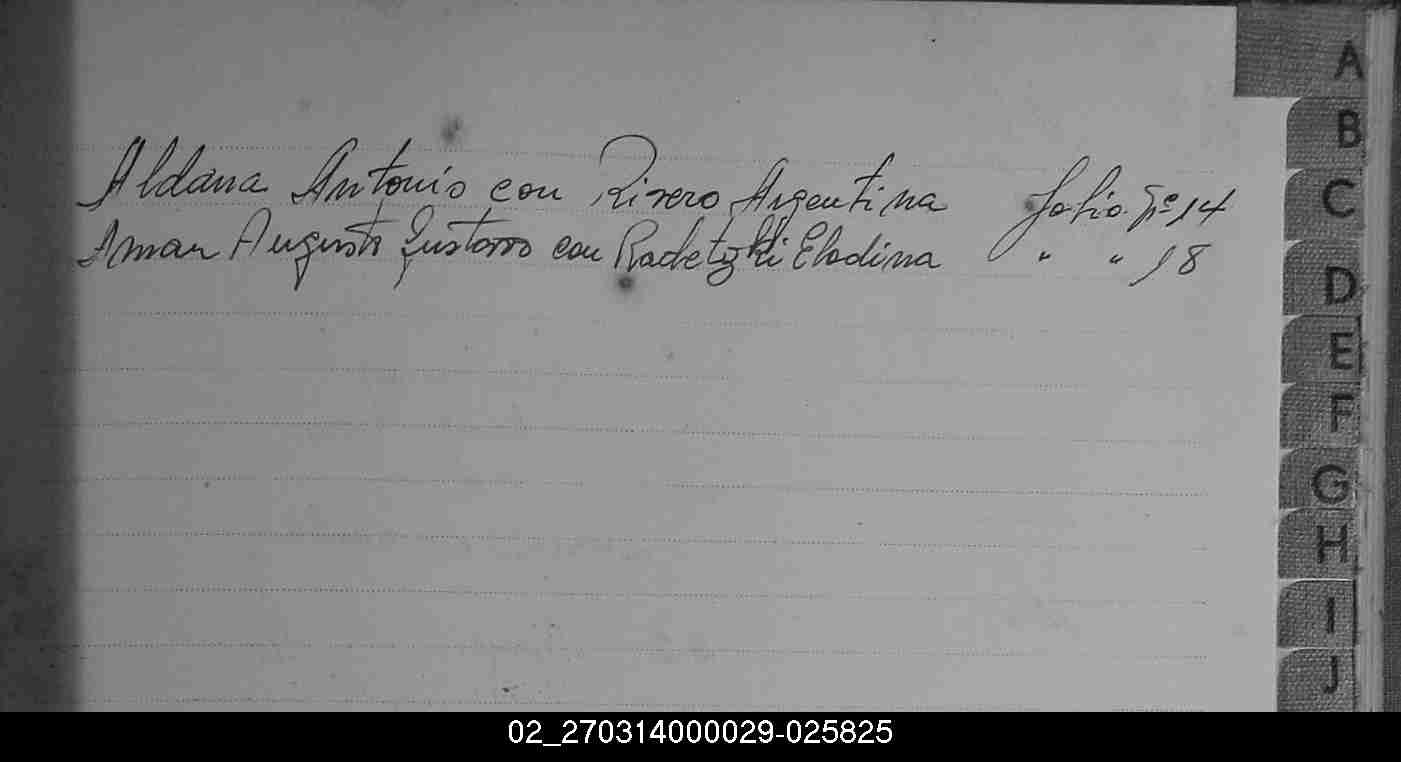 Aldana Antonio con Rivero Argentina Folio Nº 14
Aman Augusto Gustavo con Radetzki Elodina " " 18
A
B
C
D
E
F
G
H
I
J
02_270314000029-025825